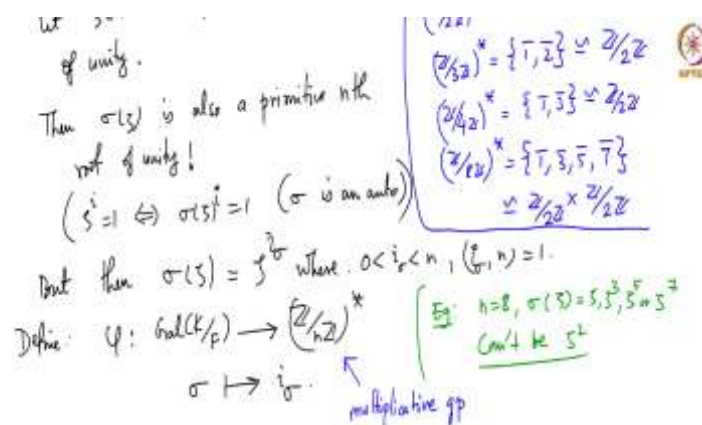 of unity.
Then σ(ζ) is also a primitive nth
root of unity!
(ζ^i = 1 ⇔ σ(ζ)^i = 1 (σ is an auto))
But then σ(ζ) = ζ^{i_σ} where 0 < i_σ < n, (i_σ, n) = 1.
Define: φ: Gal(K/F) → (ℤ/nℤ)^*
σ ↦ i_σ.
multiplicative gp
(ℤ/3ℤ)^* = {1̄, 2̄} ≃ ℤ/2ℤ
(ℤ/4ℤ)^* = {1̄, 3̄} ≃ ℤ/2ℤ
(ℤ/8ℤ)^* = {1̄, 3̄, 5̄, 7̄}
≃ ℤ/2ℤ × ℤ/2ℤ
Eg: n=8, σ(ζ) = ζ, ζ^3, ζ^5 or ζ^7
Can't be ζ^2